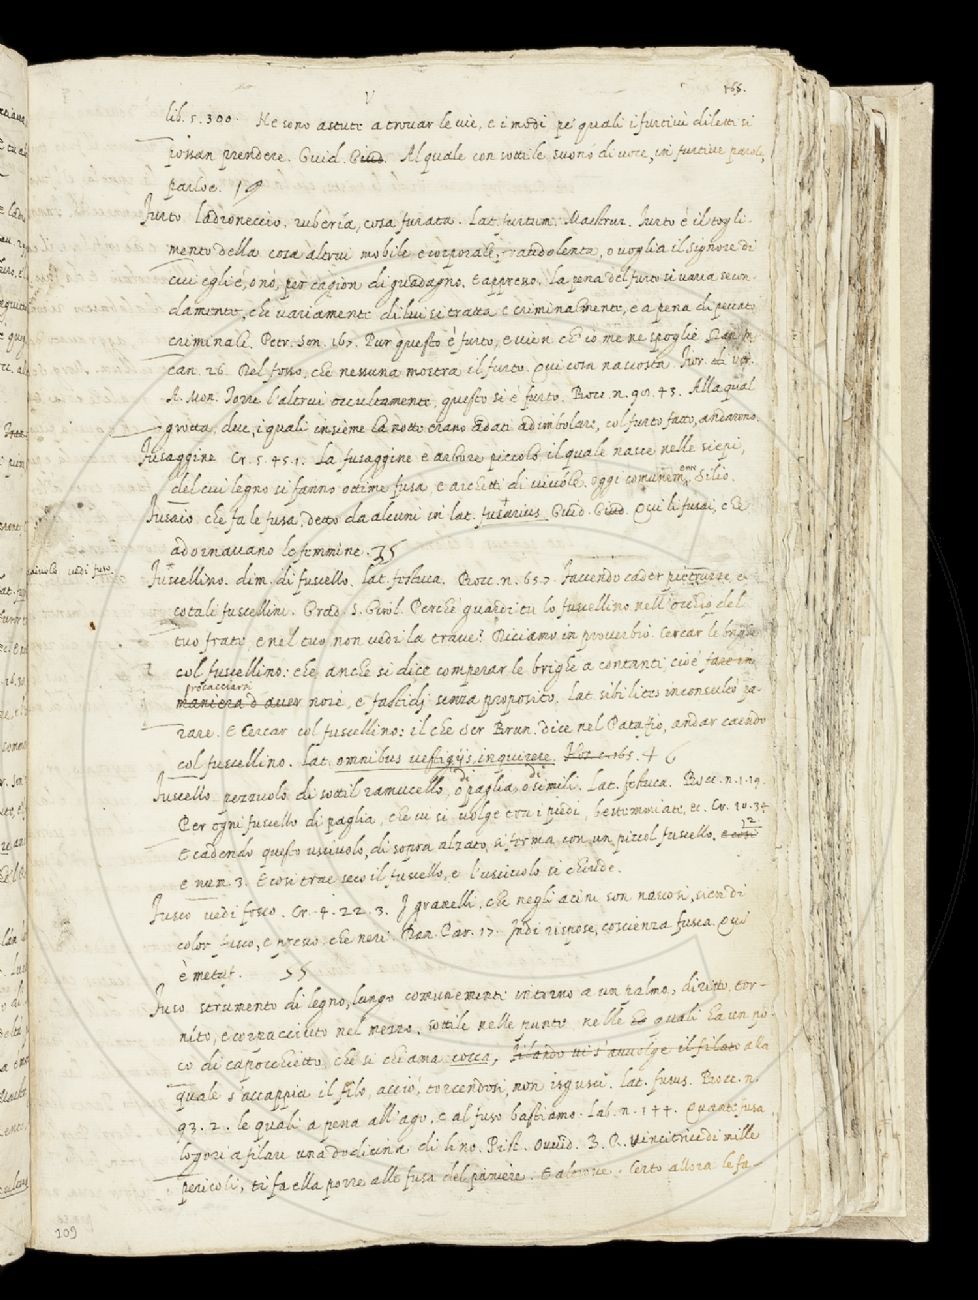 165.
lib. 5. 300. Ne sono astuti a trovar le vie, e i modi pe' quali i furtivi diletti si
possan prendere. Guid. Giud. Al quale con sottile suono di voce, in furtive parole,
parloe.
Furto ladroneccio, ruberia, cosa furata. Lat. furtum. Maestruz. Furto è il togli-
mento della cosa altrui mobile e corporale, fraudolente, o voglia il signore di
cui egli è, o nò, per cagion di guadagno. E appresso. La pena del furto si varia secon-
damente, che variamente di lui si tratta e criminalmente, e a pena di peccato
criminale. Petr. Son. 167. Pur questo è furto, e vien ch' io me ne spoglie. Dan. In.
can. 26. Del fosso, che nessuna mostra il furto. qui cosa nascosta. Fior. di vir.
A. Mon. Torre l'altrui occultamente, questo si è furto. Bocc. n. 90. 43. Alla qual
grotta, dove, i quali insieme la notte erano andati ad imbolare, col furto fatto, andarono.
Fusaggine Cr. 5. 45. 1. La fusaggine è arbore piccolo il quale nasce nelle siepi,
del cui legno si fanno ottime fusa e archetti di vivole. oggi comunemente Silio.
Fusaio che fa le fusa, detto da alcuni in lat. fusarius. Guid. Giud. Qui li fusai, che
adornavano le femmine. 35
vedi fuso.
Fuscellino. dim. di fuscello. lat. festuca. Bocc. n. 65. 7. facendo cader pietruzze, e
cotali fuscellini. Grad. S. Girol. Perché guardi tu lo fuscellino nell'occhio del
tuo frate, e nel tuo non vedi la trave? Diciamo in proverbio. Cercar le brighe
col fuscellino: che anche si dice comperar le brighe a contanti cioè fare in
procacciarsi
maniera d'aver noie, e fastidij senza proposito. lat. sibi lites inconsultò pa-
rare. E Cercar col fuscellino: il che Ser Brun. dice nel Pataffio, andar caendo
col fuscellino. Lat. omnibus vestigijs inquirere. 165. + 6
Fuscello pezzuolo di sottil ramucello, o di paglia, o di simili. Lat. festuca. Bocc. n. 1. 19.
Per ogni fuscello di paglia, che vi si volge tra i piedi, bestemmiate, et. Cr. 10. 34
12
E cadendo questo usciuolo, di sopra alzato, si ferma con un piccol fuscello, e così
e num. 3. E così trae seco il fuscello, e l'usciuolo si chiude.
Fusco vedi fosco. Cr. 4. 22. 3. I granelli, che negli acini son nascosi, sien di
color fusco, e presso che neri. Dan. Par. 17. Indi rispose, coscienza fusca. Qui
è metaf. 55
Fuso strumento di legno, lungo comunemente intorno a un palmo, diritto, tor-
nito, e corpacciuto nel mezzo, sottile nelle punte, nelle quali ha un po-
co di capocchietto, che si chiama cocca, filando vi s'avvolge il filato alla
quale s'accappia il filo, acciò, torcendosi, non isgusci. lat. fusus. Bocc. n.
93. 2. le quali a pena all'ago, e al fuso bastiamo. Lab. n. 144. Quante fusa
logori a filare una dodicina di lino. Pist. Ovvid. B. R. Vincitrice di mille
pericoli, ti fa ella porre alle fusa del paniere. E altrove. Certo allora le fu-
109